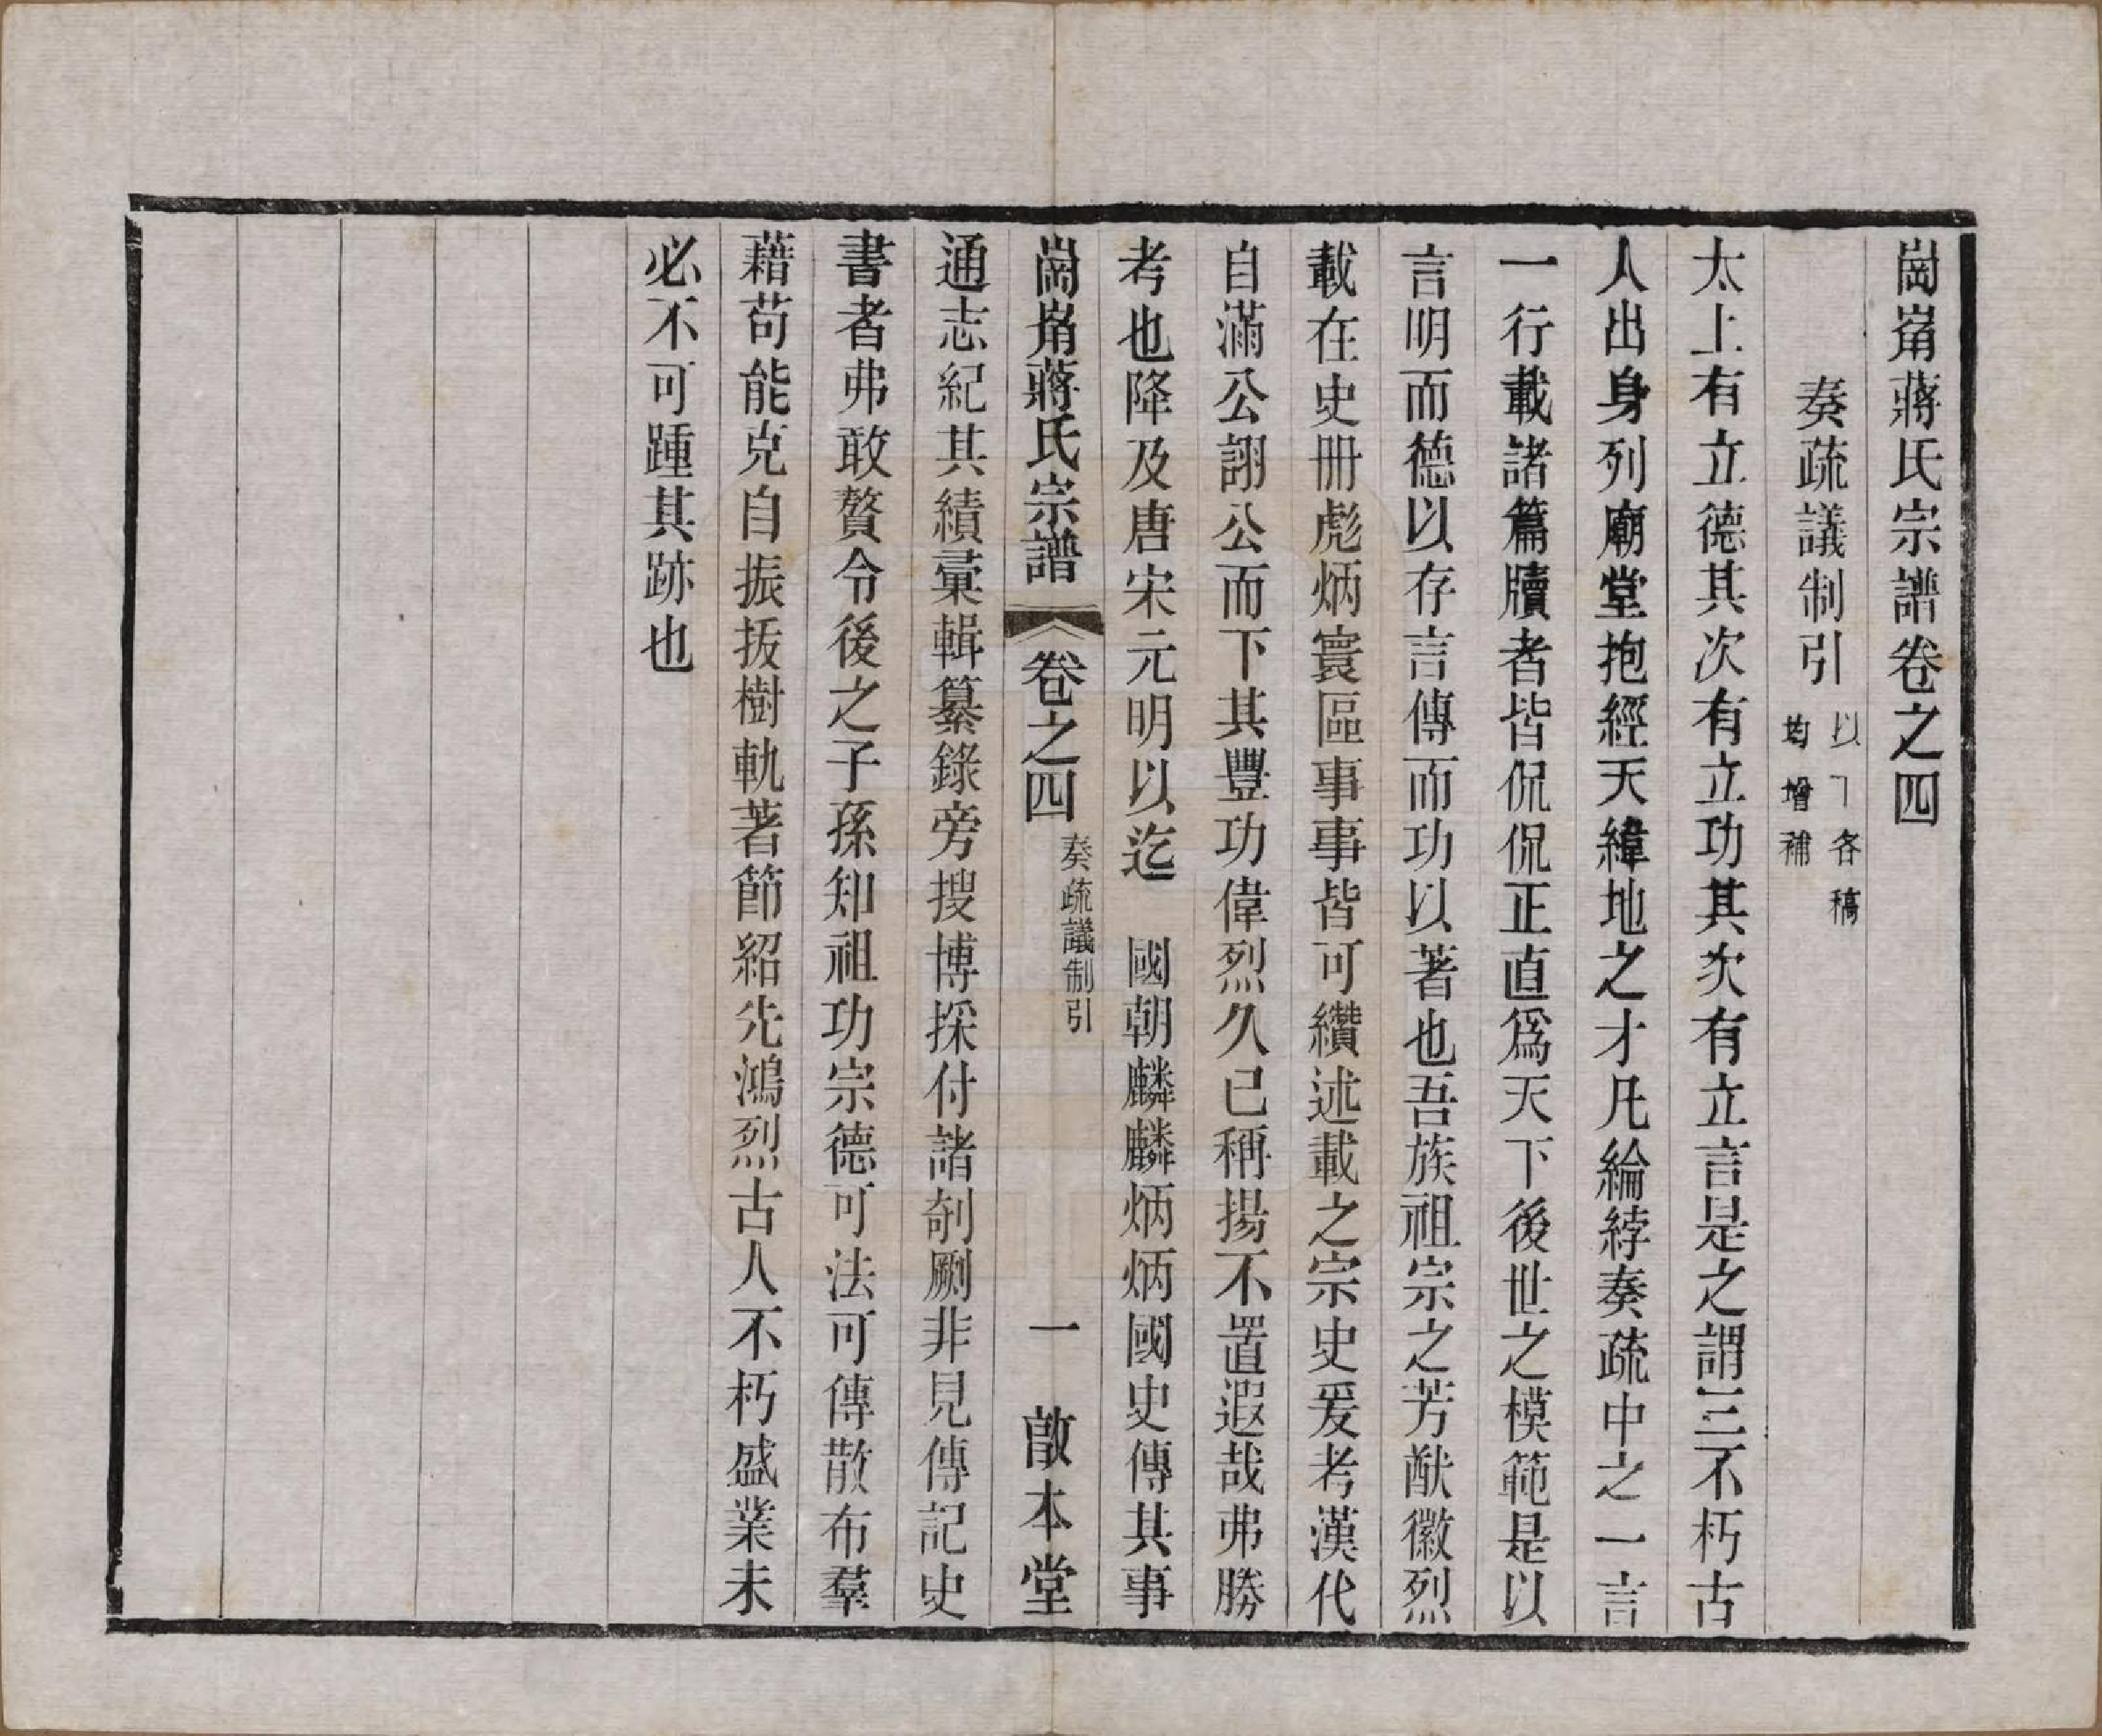 崗㟁蔣氏宗譜卷之四
奏疏議制引
以下各稿
均增補
太上有立德其次有立功其次有立言是之謂三不朽古
人出身列廟堂抱經天緯地之才凡綸綍奏疏中之一言
一行載諸篇牘者皆侃侃正直爲天下後世之模範是以
言明而德以存言傳而功以著也吾族祖宗之芳猷徽烈
載在史册彪炳寰區事事皆可纘述載之宗史爰考漢代
自滿公詡公而下其豐功偉烈久已稱揚不置遐哉弗勝
考也降及唐宋元明以迄 國朝麟麟炳炳國史傳其事
崗㟁蔣氏宗譜 卷之四 奏疏議制引 一 啟本堂
通志紀其績彙輯纂錄旁搜博採付諸剞劂非見傳記史
書者弗敢贅令後之子孫知祖功宗德可法可傳散布羣
藉苟能克自振拔樹軌著節紹先鴻烈古人不朽盛業未
必不可踵其跡也